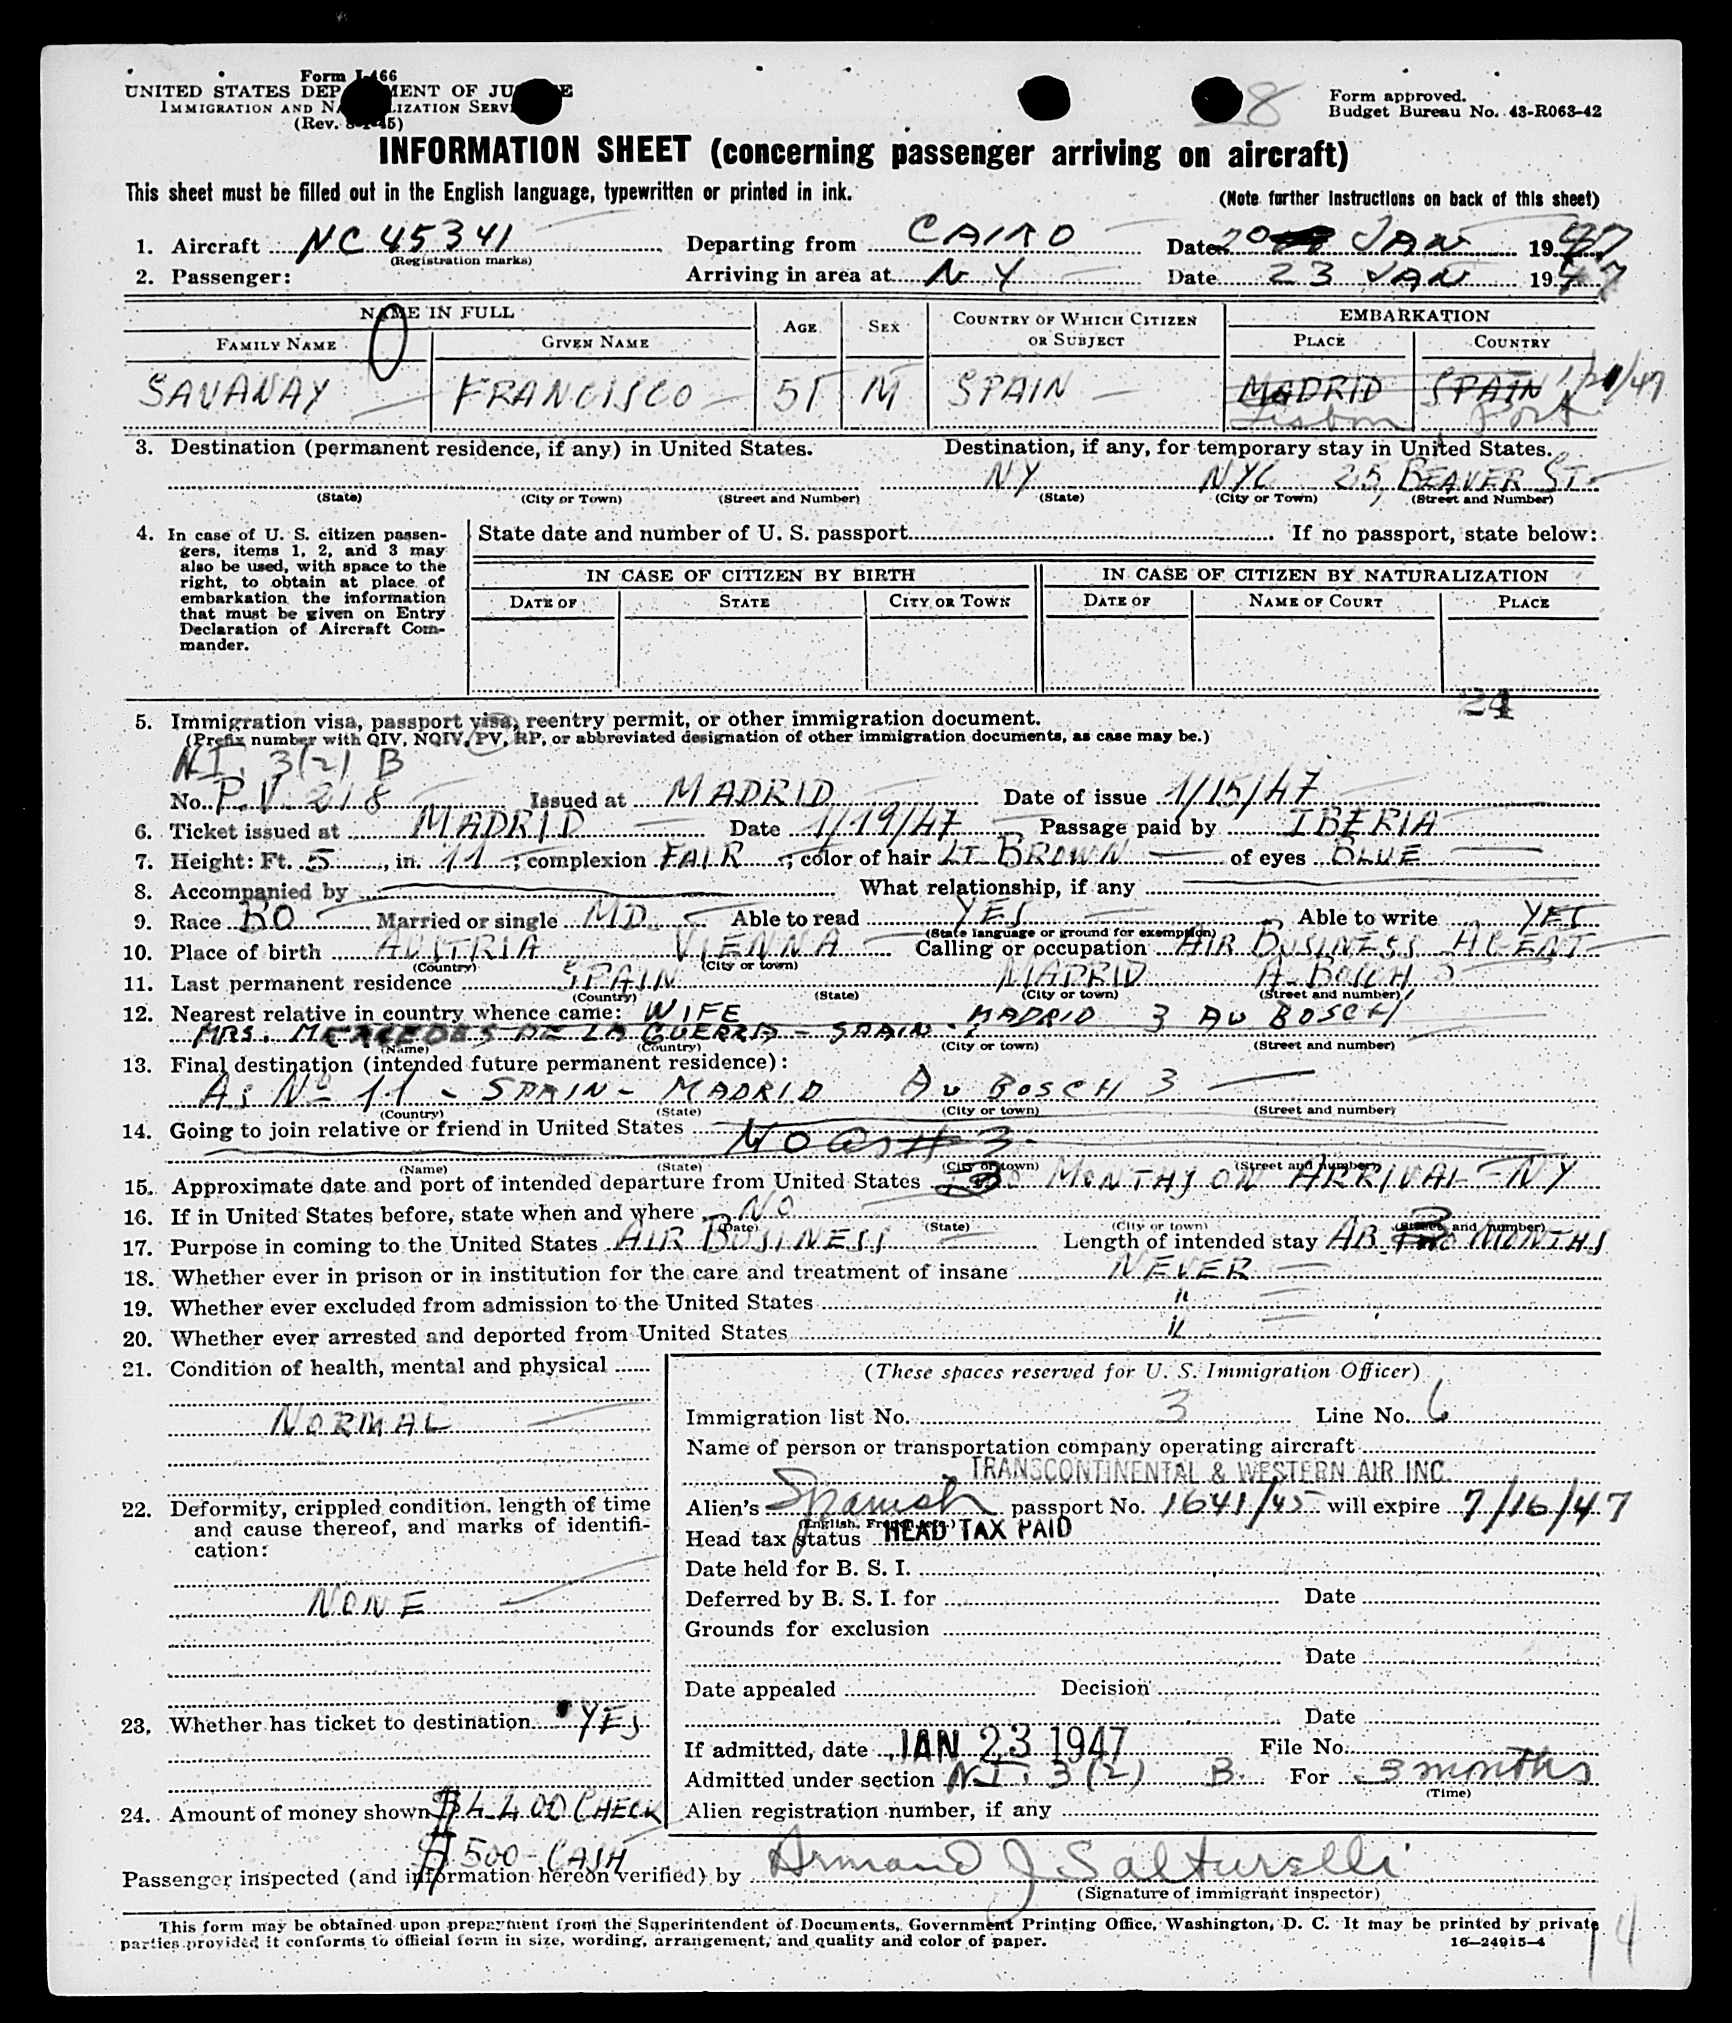 Form I-466
UNITED STATES DEPARTMENT OF JUSTICE
IMMIGRATION AND NATURALIZATION SERVICE
(Rev. 45)
28
Form approved.
Budget Bureau No. 43-R063-42
INFORMATION SHEET (concerning passenger arriving on aircraft)
This sheet must be filled out in the English language, typewritten or printed in ink.
(Note further instructions on back of this sheet)
1. Aircraft NC 45341 Departing from CAIRO Date 20 JAN 1947
(Registration marks)
2. Passenger: Arriving in area at NY Date 23 JAN 1947
NAME IN FULL AGE SEX COUNTRY OF WHICH CITIZEN OR SUBJECT EMBARKATION
FAMILY NAME GIVEN NAME PLACE COUNTRY
SAVANAY FRANCISCO 51 M SPAIN MADRID SPAIN 1/21/47
Lisbon Port
3. Destination (permanent residence, if any) in United States. Destination, if any, for temporary stay in United States.
NY NYC 25, BEAVER ST
(State) (City or Town) (Street and Number) (State) (City or Town) (Street and Number)
4. In case of U. S. citizen passen-
gers, items 1, 2, and 3 may
also be used, with space to the
right, to obtain at place of
embarkation the information
that must be given on Entry
Declaration of Aircraft Com-
mander.
State date and number of U. S. passport If no passport, state below:
IN CASE OF CITIZEN BY BIRTH IN CASE OF CITIZEN BY NATURALIZATION
DATE OF STATE CITY OR TOWN DATE OF NAME OF COURT PLACE
24
5. Immigration visa, passport visa, reentry permit, or other immigration document.
(Prefix number with QIV, NQIV, PV, RP, or abbreviated designation of other immigration documents, as case may be.)
N.I. 3(2) B
No. P.V. 218 Issued at MADRID Date of issue 1/15/47
6. Ticket issued at MADRID Date 1/19/47 Passage paid by IBERIA
7. Height: Ft. 5, in. 11; complexion FAIR; color of hair LT BROWN of eyes BLUE
8. Accompanied by What relationship, if any
9. Race BO Married or single MD. Able to read YES Able to write YES
(State language or ground for exemption)
10. Place of birth AUSTRIA VIENNA Calling or occupation AIR BUSINESS AGENT
(Country) (City or town)
11. Last permanent residence SPAIN MADRID A. BOSCH 3
(Country) (State) (City or town) (Street and number)
12. Nearest relative in country whence came: WIFE MADRID 3 AV BOSCH
MRS. MERCEDES DE LA GUERRA - SPAIN.
(Name) (Country) (City or town) (Street and number)
13. Final destination (intended future permanent residence):
As No 11 - SPAIN - MADRID AV BOSCH 3
(Country) (State) (City or town) (Street and number)
14. Going to join relative or friend in United States NO
(Name) (State) (City or town) (Street and number)
15. Approximate date and port of intended departure from United States 3 MONTHS ON ARRIVAL - NY
16. If in United States before, state when and where NO
(Date) (State) (City or town) (Street and number)
17. Purpose in coming to the United States AIR BUSINESS Length of intended stay AB. 3 MONTHS
18. Whether ever in prison or in institution for the care and treatment of insane NEVER
19. Whether ever excluded from admission to the United States "
20. Whether ever arrested and deported from United States "
21. Condition of health, mental and physical
NORMAL
22. Deformity, crippled condition, length of time
and cause thereof, and marks of identifi-
cation:
NONE
23. Whether has ticket to destination YES
24. Amount of money shown $4400 CHECK
$500 - CASH
(These spaces reserved for U. S. Immigration Officer)
Immigration list No. 3 Line No. 6
Name of person or transportation company operating aircraft
TRANSCONTINENTAL & WESTERN AIR INC.
Alien's Spanish passport No. 1641/45 will expire 7/16/47
(English, French, etc.)
Head tax status HEAD TAX PAID
Date held for B. S. I.
Deferred by B. S. I. for Date
Grounds for exclusion
Date
Date appealed Decision
Date
If admitted, date JAN 23 1947 File No.
Admitted under section N.I. 3(2) B. For 3 months
(Time)
Alien registration number, if any
Passenger inspected (and information hereon verified) by Armand J Salturelli
(Signature of immigrant inspector)
This form may be obtained upon prepayment from the Superintendent of Documents, Government Printing Office, Washington, D. C. It may be printed by private
parties provided it conforms to official form in size, wording, arrangement, and quality and color of paper.
16—24915-4
14